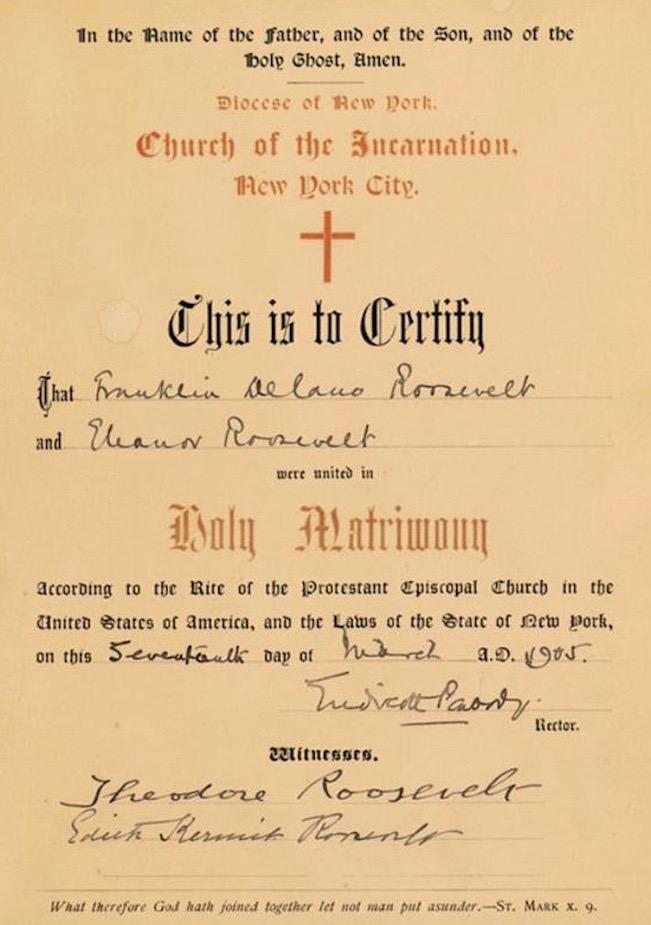 In the Name of the Father, and of the Son, and of the
Holy Ghost, Amen.
Diocese of New York.
Church of the Incarnation,
New York City.
This is to Certify
That Franklin Delano Roosevelt
and Eleanor Roosevelt
were united in
Holy Matrimony
According to the Rite of the Protestant Episcopal Church in the
United States of America, and the Laws of the State of New York,
on this Seventeenth day of March A.D. 1905.
Endicott Peabody.
Rector.
Witnesses.
Theodore Roosevelt
Edith Kermit Roosevelt
What therefore God hath joined together let not man put asunder.—ST. MARK X. 9.